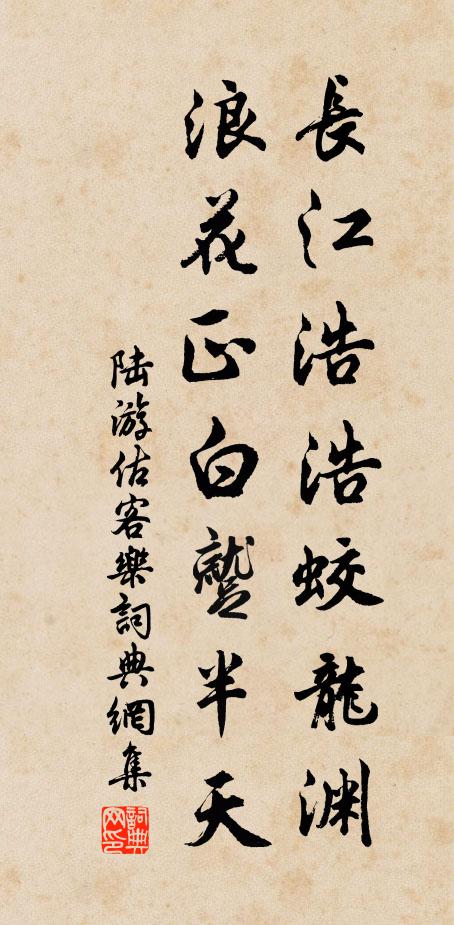 長江浩浩蛟龍渊
浪花正白蹵半天
陆游估客樂詞典網集
詞典网印